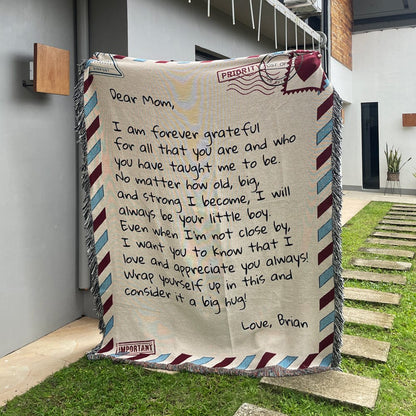 PRIORITY
Dear Mom,
I am forever grateful
for all that you are and who
you have taught me to be.
No matter how old, big,
and strong I become, I will
always be your little boy.
Even when I'm not close by,
I want you to know that I
love and appreciate you always!
Wrap yourself up in this and
consider it a big hug!
Love, Brian
IMPORTANT